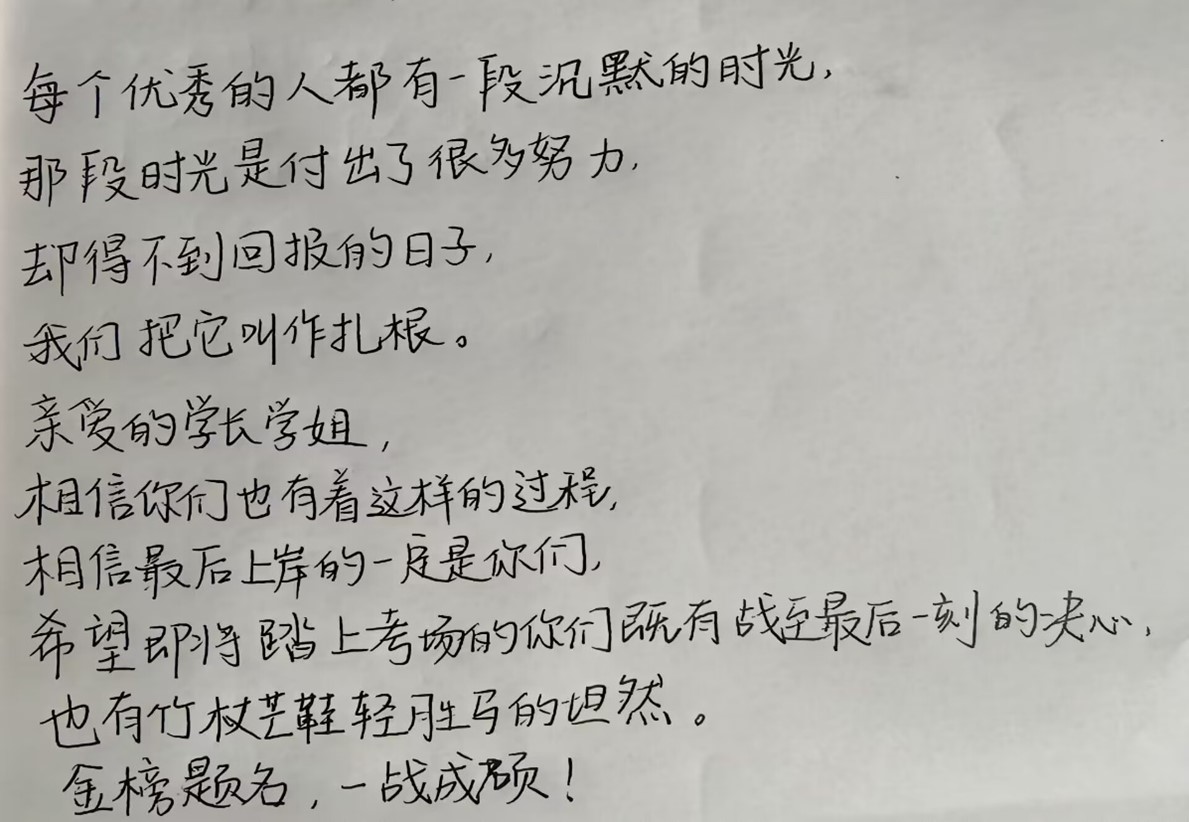 每个优秀的人都有一段沉默的时光,
那段时光是付出了很多努力,
却得不到回报的日子,
我们把它叫作扎根。
亲爱的学长学姐,
相信你们也有着这样的过程,
相信最后上岸的一定是你们,
希望即将踏上考场的你们既有战至最后一刻的决心,
也有竹杖芒鞋轻胜马的坦然。
金榜题名,一战成硕!